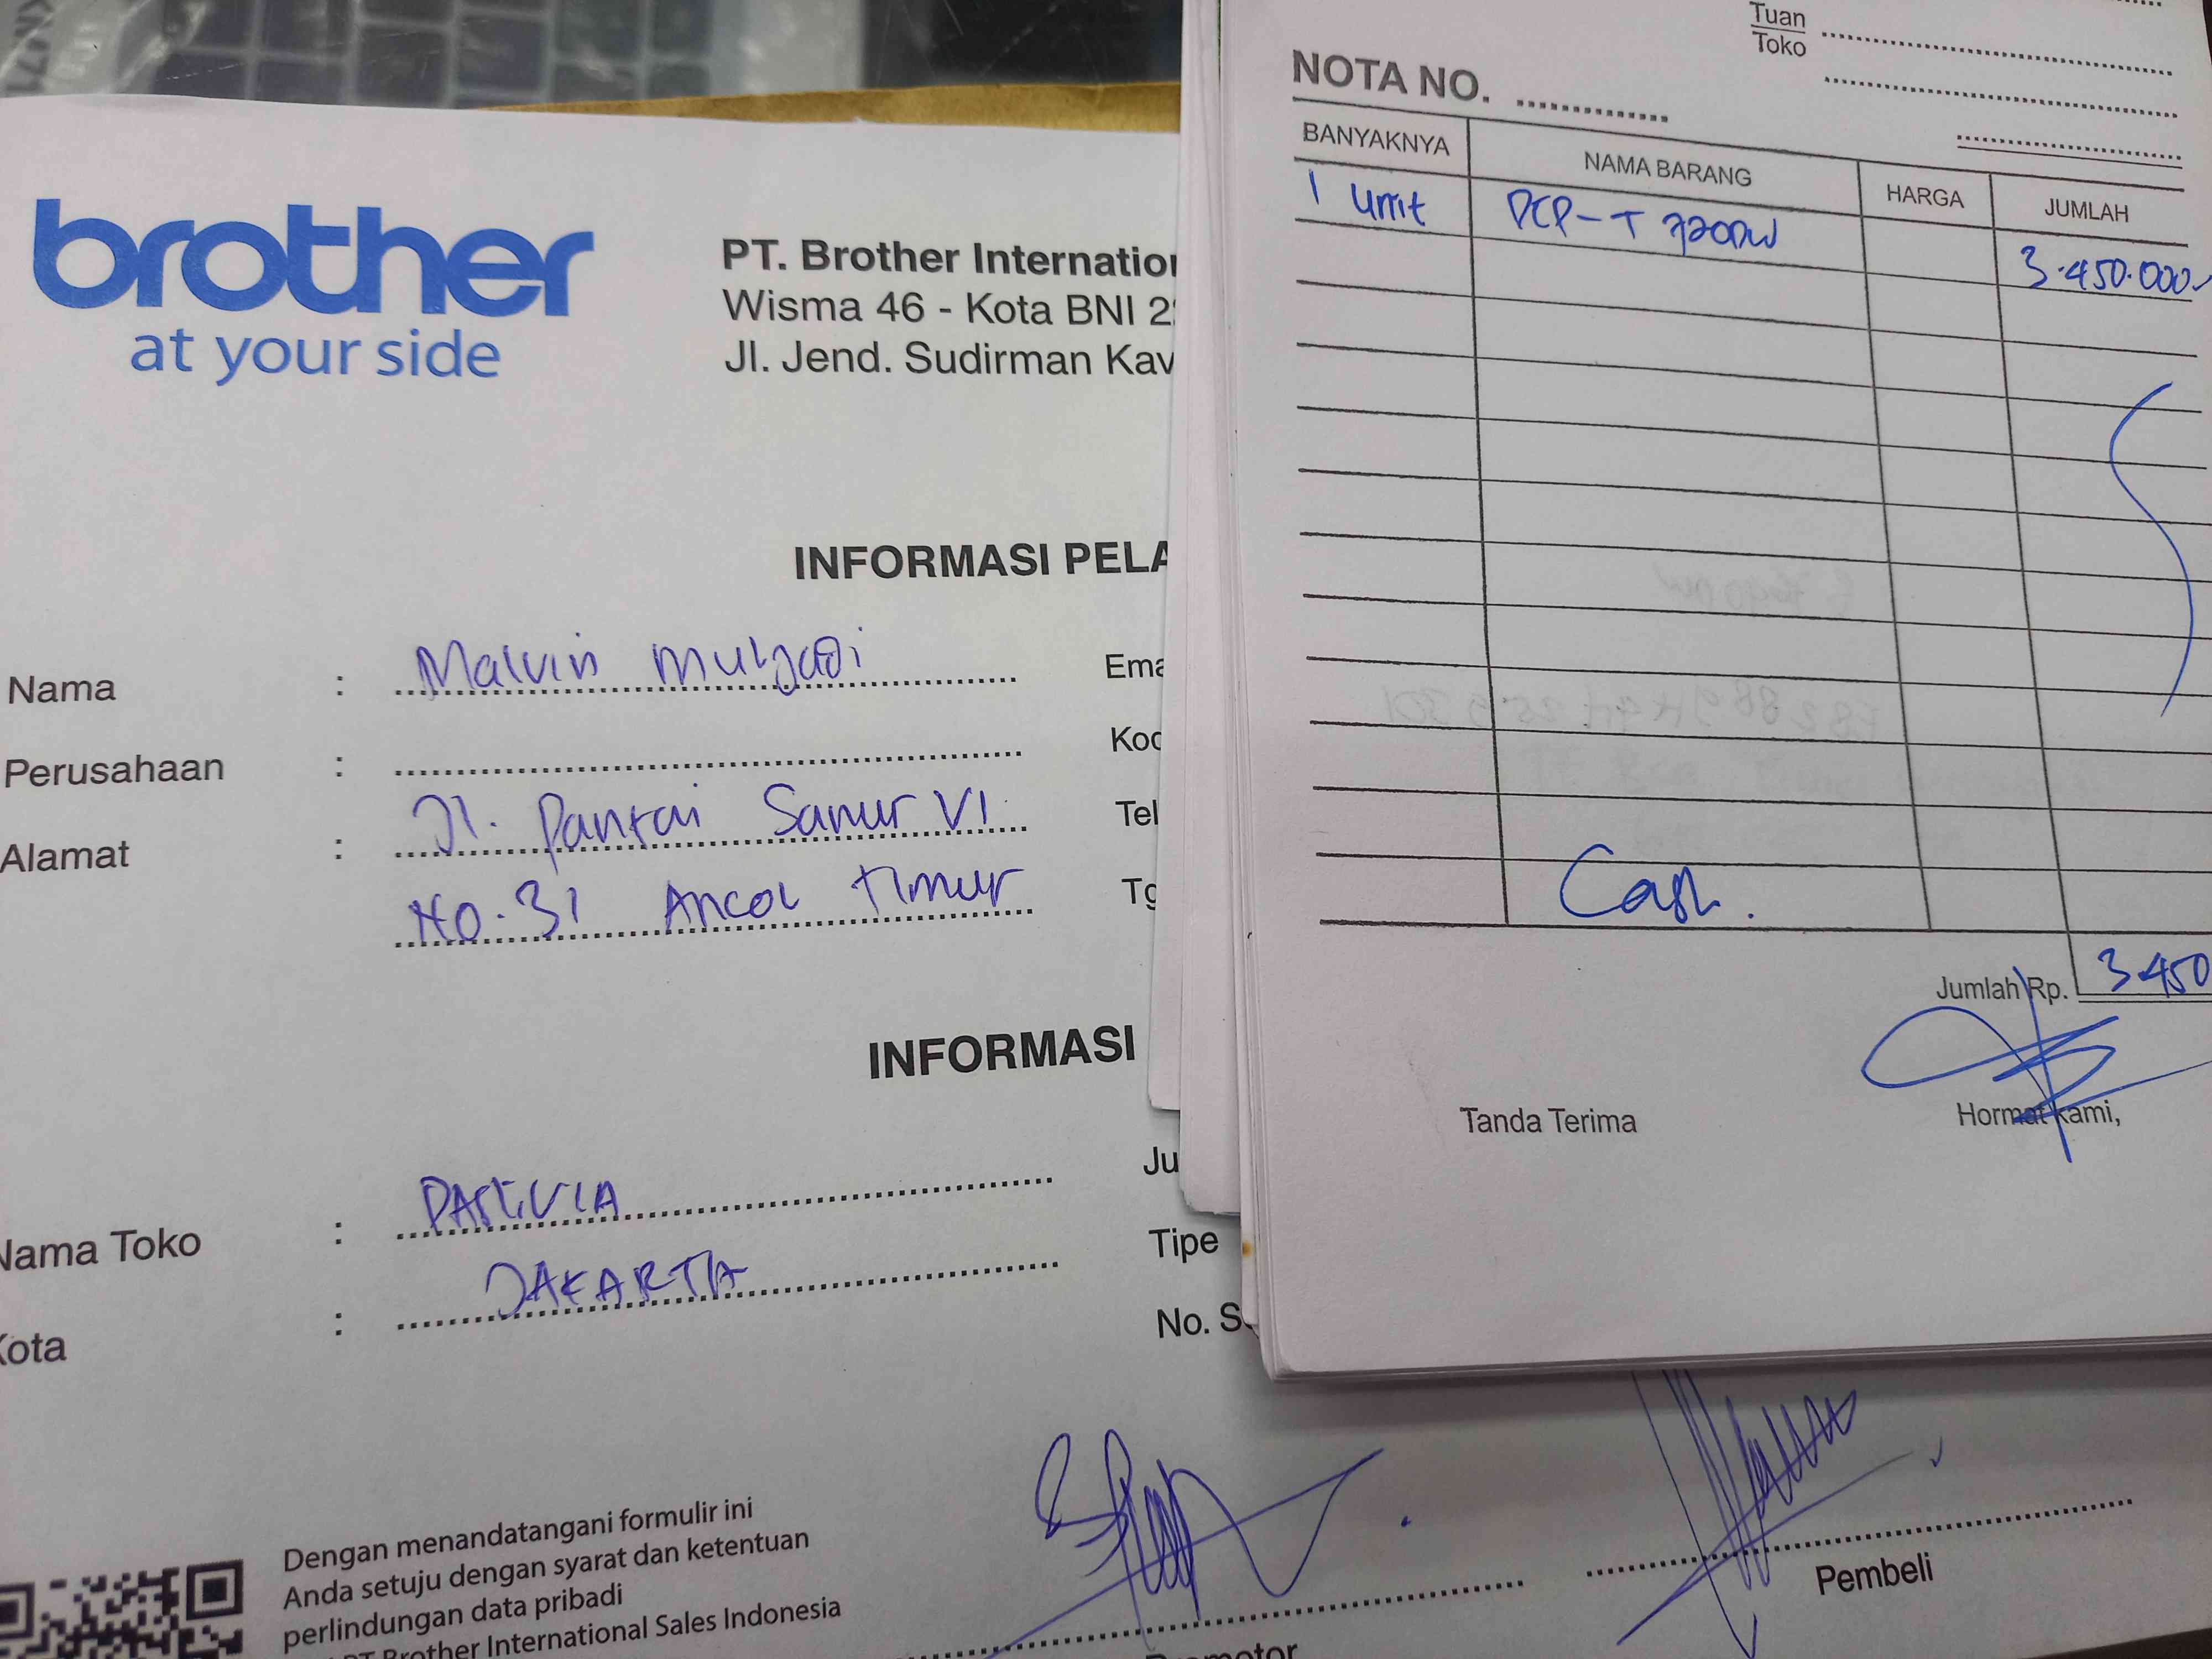 brother
at your side
PT. Brother Internation
Wisma 46 - Kota BNI 2
Jl. Jend. Sudirman Kav
INFORMASI PELA
Nama : Malvin Mulyadi Ema
Perusahaan : Kod
Alamat : Jl. Pantai Sanur VI Tel
No. 31 Ancol Timur Tg
INFORMASI
Nama Toko : Ju
Kota : JAKARTA Tipe
No. S
Dengan menandatangani formulir ini
Anda setuju dengan syarat dan ketentuan
perlindungan data pribadi
PT Brother International Sales Indonesia
Promotor
Pembeli
Tuan
Toko
NOTA NO.
BANYAKNYA NAMA BARANG HARGA JUMLAH
1 unit DCP-T 720DW 3.450.000
Cash.
Jumlah Rp. 3.450
Tanda Terima Hormat kami,